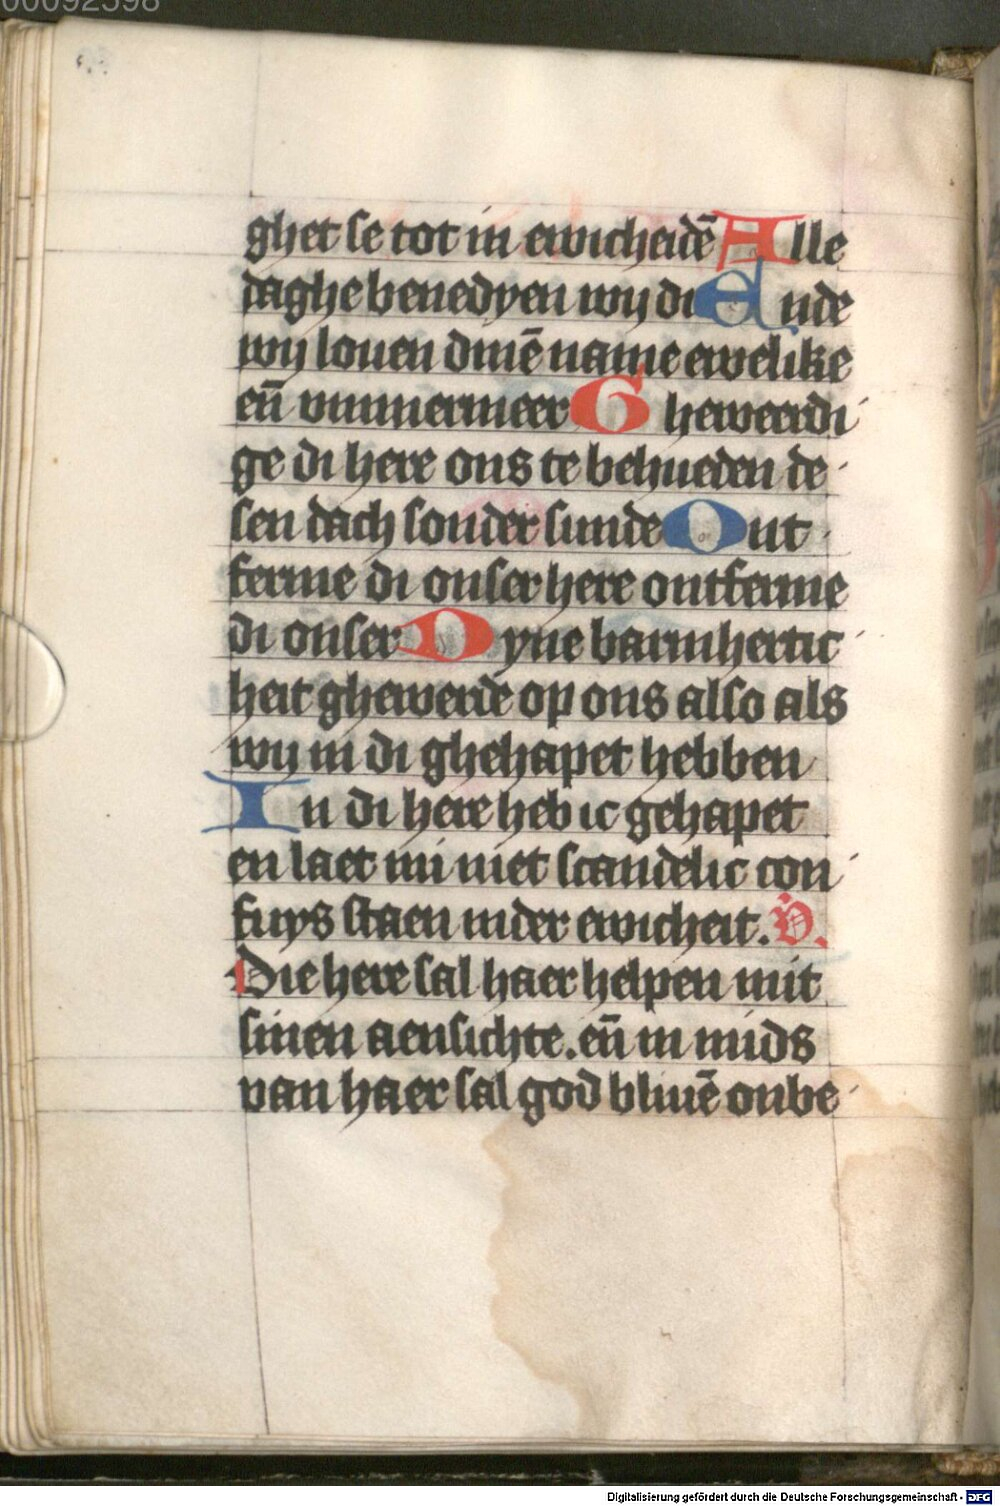 00092598
ghet se tot in ewicheidē Alle
daghe benedyen wij di Ende
wij louen dinē name ewelike
eñ ummermeer Gheweerdi
ge di here ons te behueden de
sen dach sonder sunde Ont
ferme di onser here ontferme
di onser Dyne barmhertic
heit ghewerde op ons also als
wij in di ghehapet hebben
In di here heb ic gehapet
en laet mi niet scandelic con
fuys staen inder ewicheit. V.
Die here sal haer helpen mit
sinen aensichte. eñ in mids
van haer sal god bliuē onbe
Digitalisierung gefördert durch die Deutsche Forschungsgemeinschaft - DFG